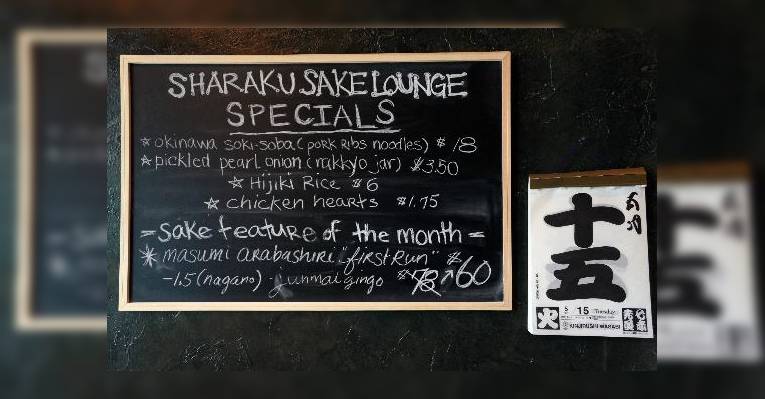 SHARAKU SAKE LOUNGE
SPECIALS
☆ okinawa soki-soba (pork Ribs noodles) $18
☆ pickled pearl onion (rakkyo jar) $3.50
☆ Hijiki Rice $6
☆ chicken hearts $1.75
= sake feature of the month =
* masumi arabashiri "first Run" $
-1.5 (nagano) - junmai gingo $78 60
十五
5
15 Tuesday
火
KINJIRUSHI WASABI